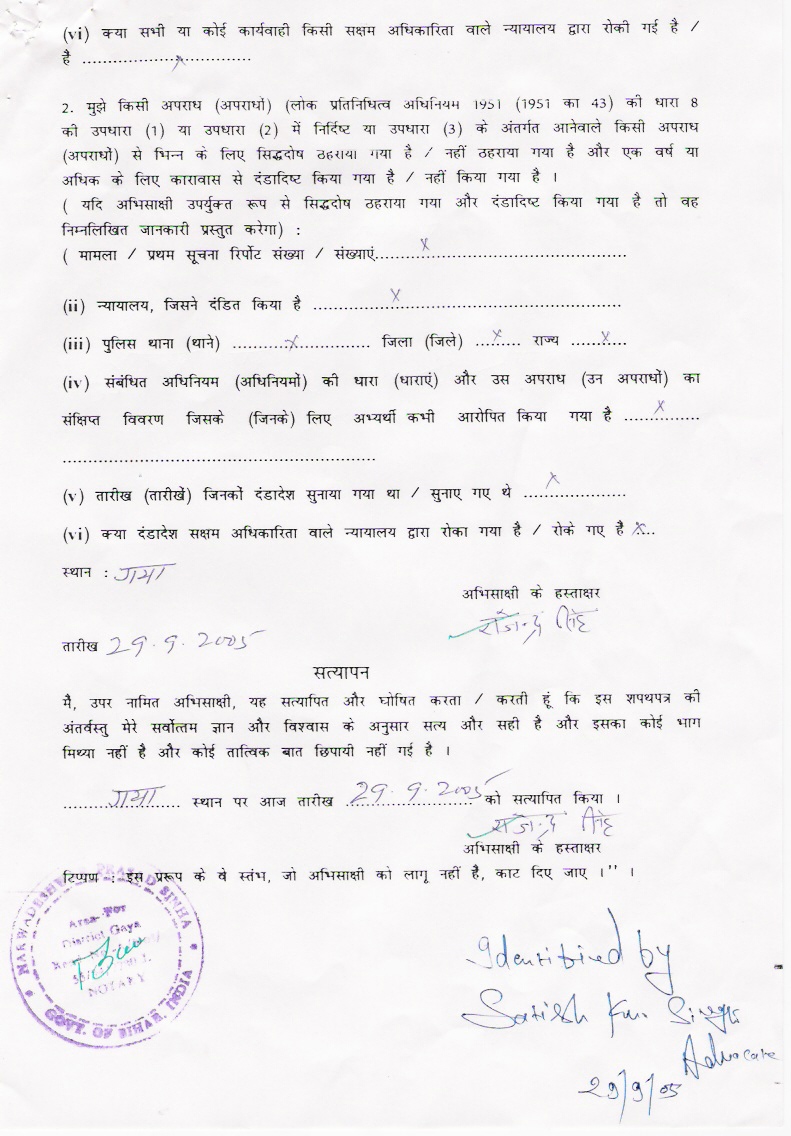 (vi) क्या सभी या कोई कार्यवाही किसी सक्षम अधिकारिता वाले न्यायालय द्वारा रोकी गई है /
है ...............x...............
2. मुझे किसी अपराध (अपराधों) (लोक प्रतिनिधित्व अधिनियम 1951 (1951 का 43) की धारा 8
की उपधारा (1) या उपधारा (2) में निर्दिष्ट या उपधारा (3) के अंतर्गत आनेवाले किसी अपराध
(अपराधों) से भिन्न के लिए सिद्धदोष ठहराया गया है / नहीं ठहराया गया है और एक वर्ष या
अधिक के लिए कारावास से दंडादिष्ट किया गया है / नहीं किया गया है ।
( यदि अभिसाक्षी उपर्युक्त रूप से सिद्धदोष ठहराया गया और दंडादिष्ट किया गया है तो वह
निम्नलिखित जानकारी प्रस्तुत करेगा) :
( मामला / प्रथम सूचना रिर्पोट संख्या / संख्याएं.........x.....................................
(ii) न्यायालय, जिसने दंडित किया है ...............x.......................................
(iii) पुलिस थाना (थाने) ...........x............. जिला (जिले) ....x.... राज्य ......x....
(iv) संबंधित अधिनियम (अधिनियमों) की धारा (धाराएं) और उस अपराध (उन अपराधों) का
संक्षिप्त विवरण जिसके (जिनके) लिए अभ्यर्थी कभी आरोपित किया गया है ......x.........
.........................................................
(v) तारीख (तारीखें) जिनकों दंडादेश सुनाया गया था / सुनाए गए थे .....x..............
(vi) क्या दंडादेश सक्षम अधिकारिता वाले न्यायालय द्वारा रोका गया है / रोके गए है x...
स्थान : गया
अभिसाक्षी के हस्ताक्षर
राजेन्द्र सिंह
तारीख 29.9.2005
सत्यापन
मै, उपर नामित अभिसाक्षी, यह सत्यापित और घोषित करता / करती हूं कि इस शपथपत्र की
अंतर्वस्तु मेरे सर्वोत्तम ज्ञान और विश्वास के अनुसार सत्य और सही है और इसका कोई भाग
मिथ्या नहीं है और कोई तात्विक बात छिपायी नहीं गई है ।
.........गया......... स्थान पर आज तारीख 29.9.2005 को सत्यापित किया ।
राजेन्द्र सिंह
अभिसाक्षी के हस्ताक्षर
टिप्पण : इस प्ररूप के वे स्तंभ, जो अभिसाक्षी को लागू नहीं है, काट दिए जाए ।'' ।
NARWADESHWAR PRASAD SINHA
Area For
District Gaya
NOTARY
GOVT. OF BIHAR, INDIA
Identified by
Satish Kr. Singh
Advocate
29/9/05